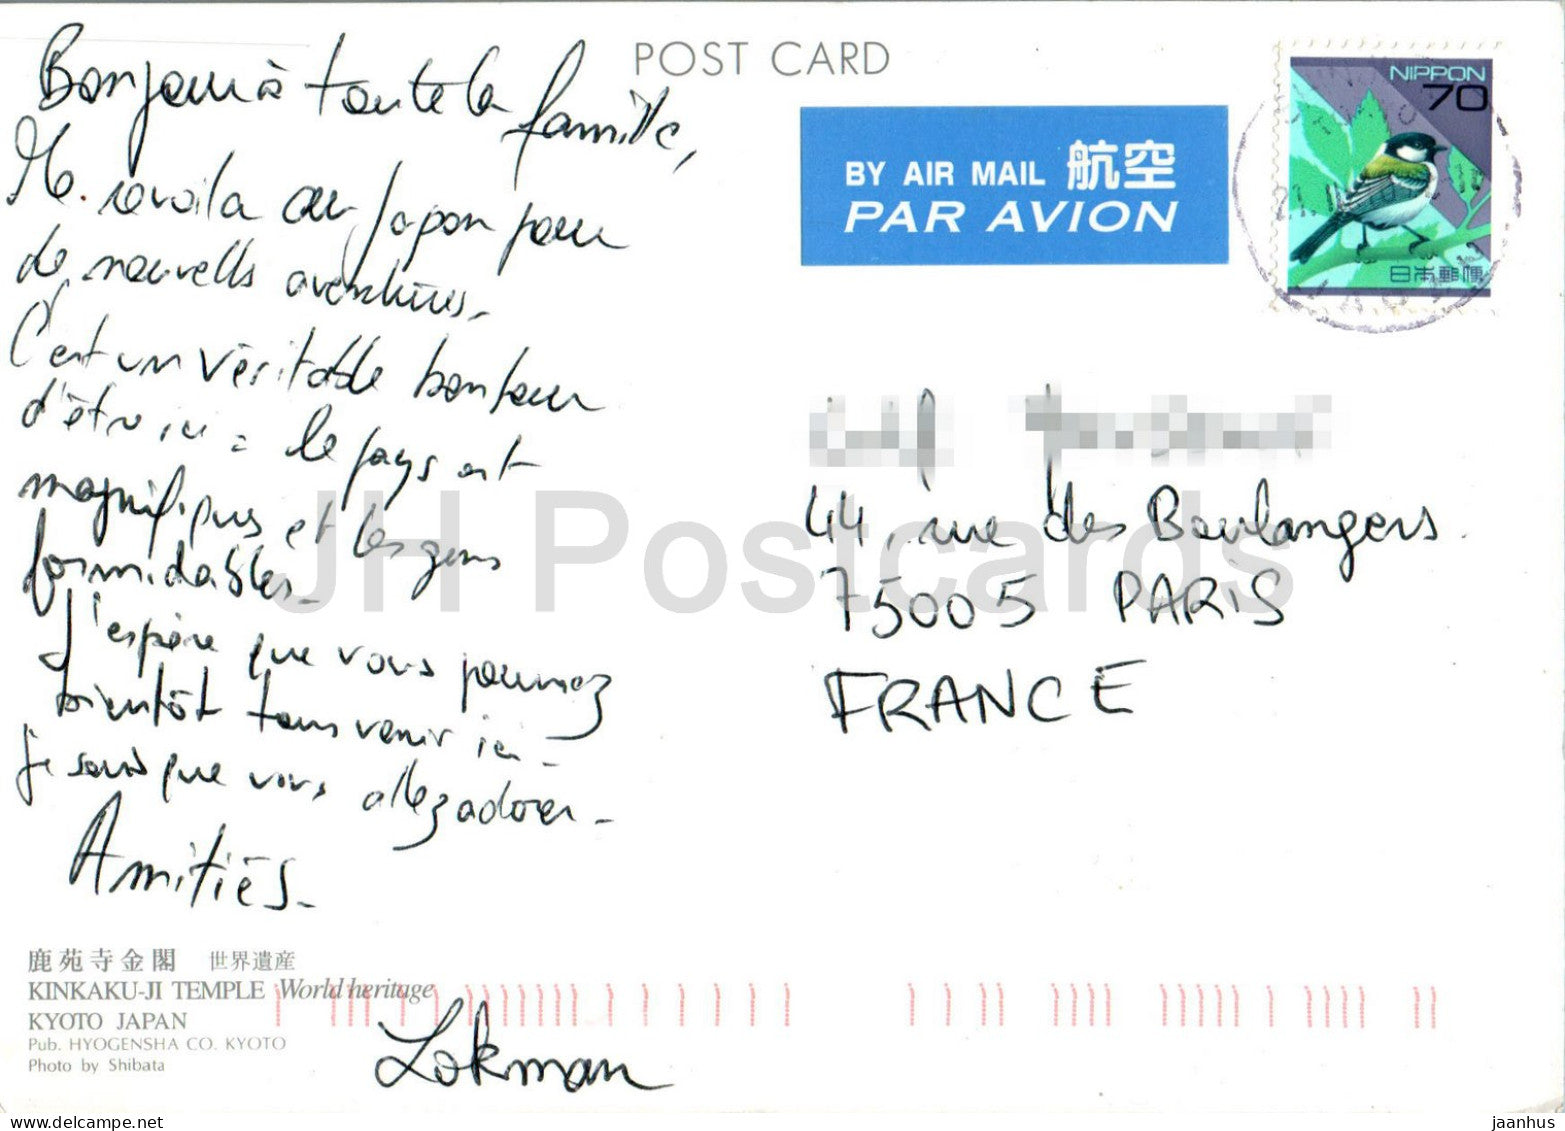 POST CARD
Bonjour à toute la famille,
Me revoila au Japon pour
de nouvelles aventures.
C'est un véritable bonheur
d'être ici : le pays est
magnifique et les gens
formidables.
J'espère que vous pourrez
bientôt tous venir ici.
je sais que vous allez adorer.
Amitiés.
Lokman
BY AIR MAIL 航空
PAR AVION
NIPPON
70
日本郵便
44, rue des Boulangers.
75005 PARIS
FRANCE
鹿苑寺金閣 世界遺産
KINKAKU-JI TEMPLE World heritage
KYOTO JAPAN
Pub. HYOGENSHA CO. KYOTO
Photo by Shibata
JH Postcards
jaanhus